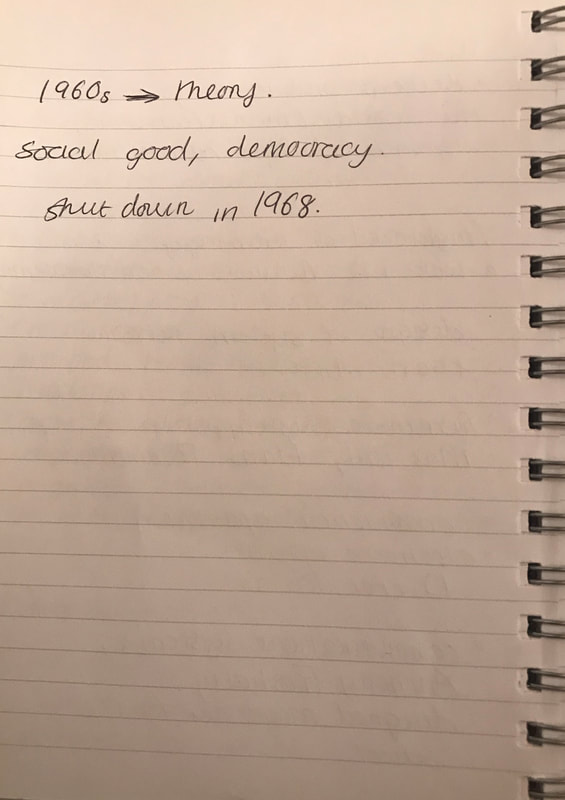 1960s → theory.
social good, democracy.
shut down in 1968.